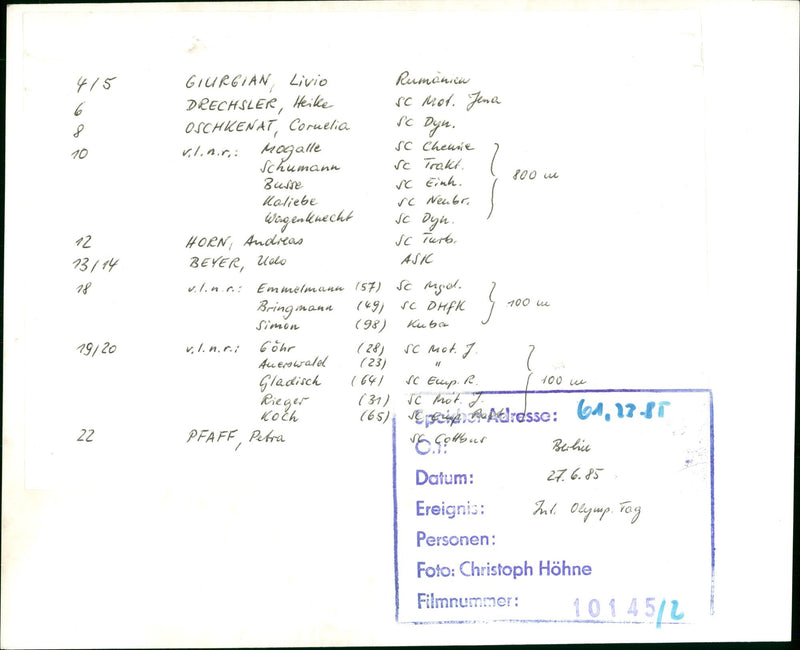 4/5 GIURGIAN, Livio Rumänien
6 DRECHSLER, Heike SC Mot. Jena
8 OSCHKENAT, Cornelia SC Dyn.
10 v.l.n.r.: Mogalle SC Chemie
Schumann SC Trakt.
Busse SC Einh. 800 m
Kaliebe SC Neubr.
Wagenknecht SC Dyn.
12 HORN, Andreas SC Turb.
13/14 BEYER, Udo ASK
18 v.l.n.r.: Emmelmann (57) SC Mgd.
Bringmann (49) SC DHfK 100 m
Simon (98) Kuba
19/20 v.l.n.r.: Göhr (28) SC Mot. J.
Auerswald (23) "
Gladisch (64) SC Emp. R. 100 m
Rieger (31) SC Mot. J.
Koch (65) SC
22 PFAFF, Petra SC Cottbus
Speicher-Adresse: 61.23-85
O.: Berlin
Datum: 27.6.85
Ereignis: Int. Olymp. Tag
Personen:
Foto: Christoph Höhne
Filmnummer: 10145/2